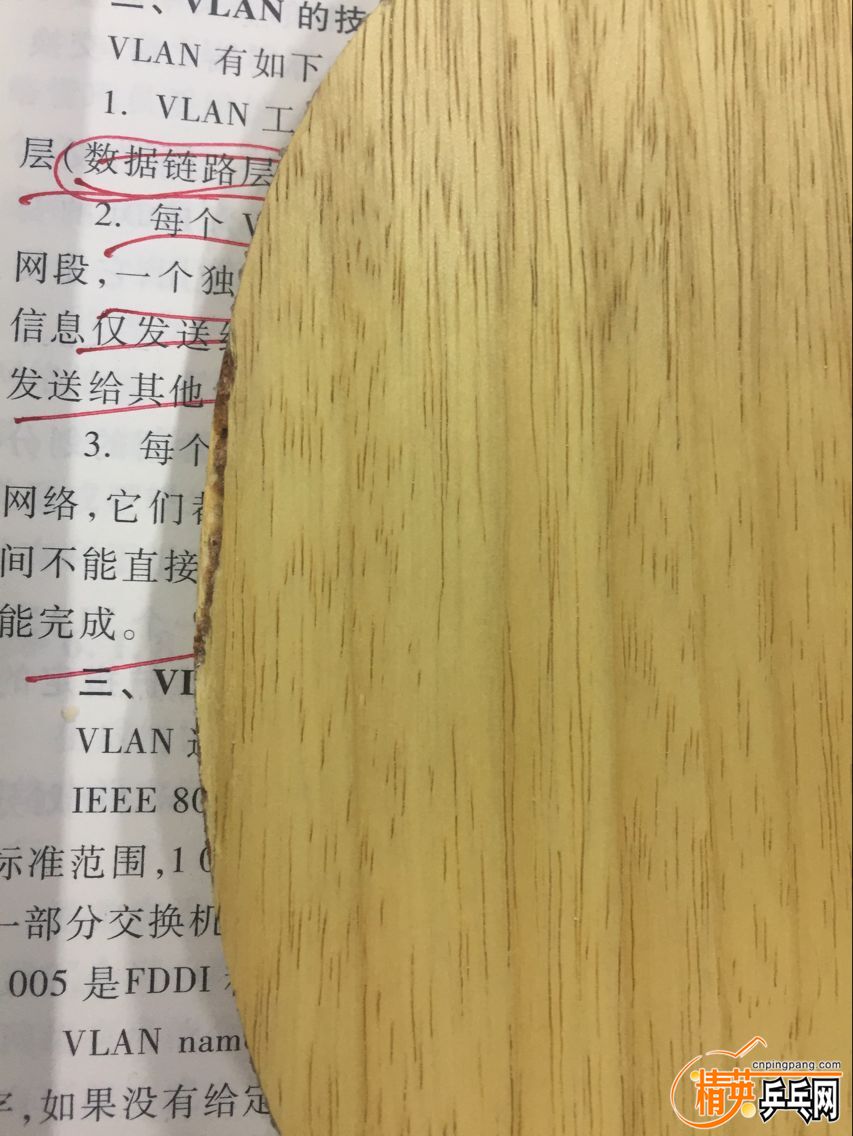 二、VLAN 的技
VLAN 有如下
1. VLAN 工
层(数据链路层
2. 每个 V
网段,一个独
信息仅发送给
发送给其他
3. 每个
网络,它们都
间不能直接
能完成。
三、VL
VLAN
IEEE 80
标准范围,10
一部分交换机
005 是FDDI
VLAN nam
,如果没有给定
cnpingpang.com
精英乒乓网